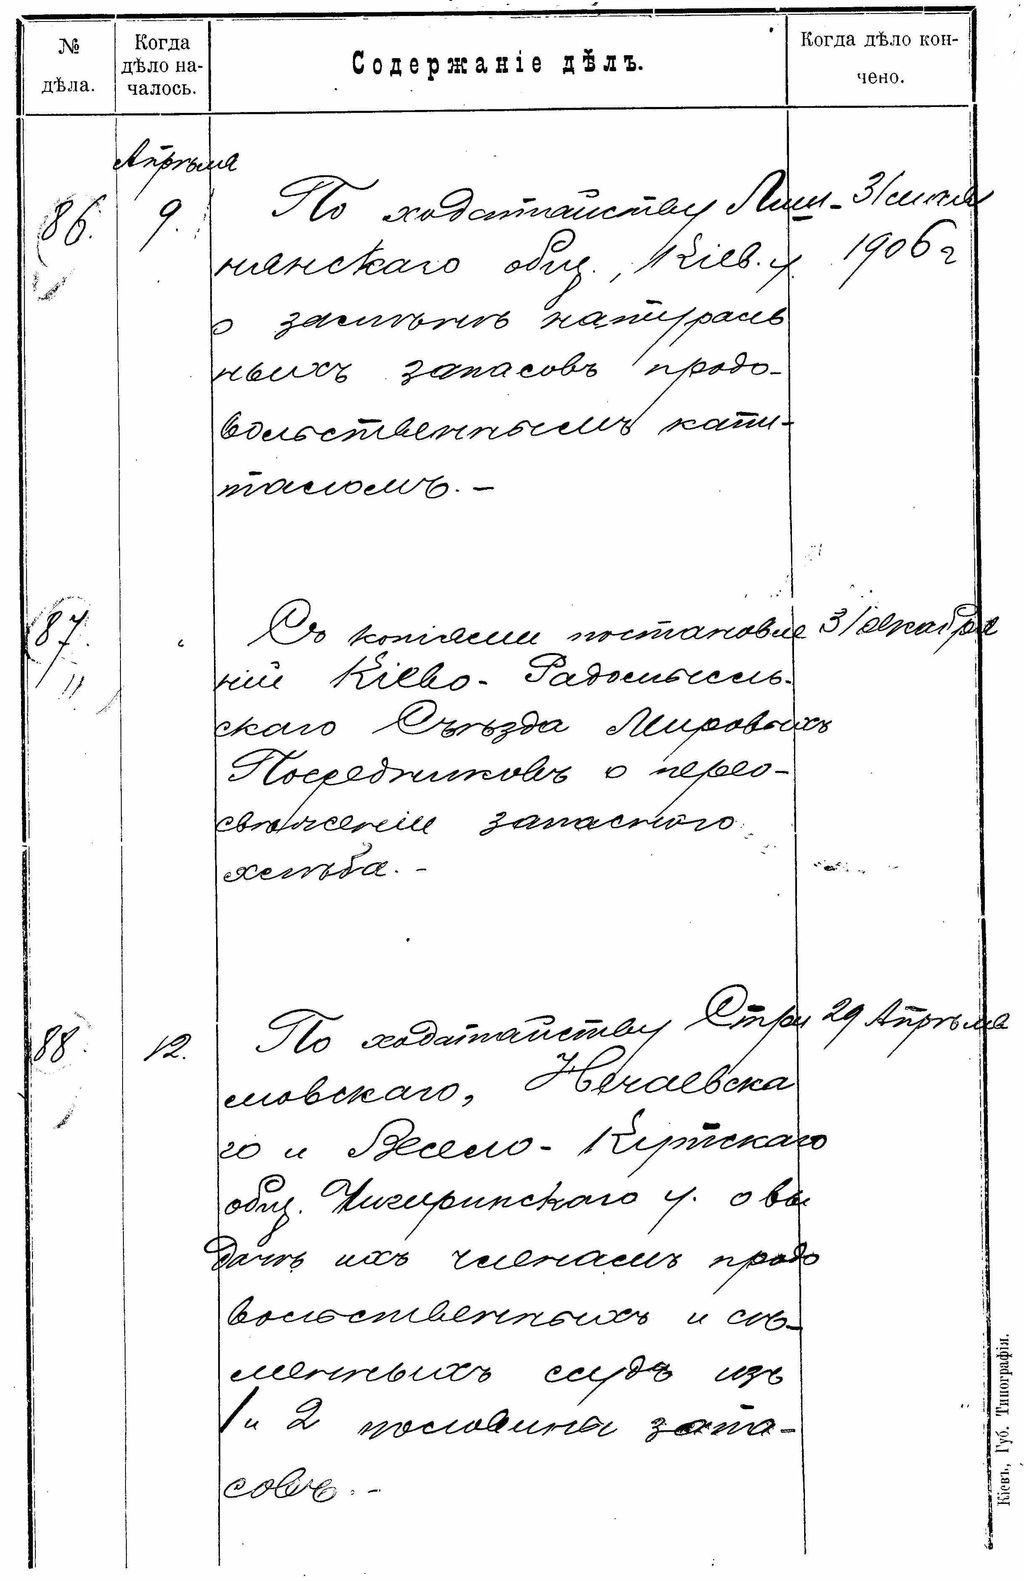 № дѣла.
Когда дѣло на-
чалось.
Содержаніе дѣлъ.
Когда дѣло кон-
чено.
Апрѣля
86. 9. По ходатайству 31 мая
нянскаго общ., Кіев. у. 1906 г
о замѣнѣ натураль
ныхъ запасовъ продо-
вольственнымъ капи-
таломъ. –
87. " Съ копіями постановле 31 декабря
ній Кіево-Радомысль-
скаго Съѣзда Мировыхъ
Посредниковъ о перео-
свѣженіи запаснаго
хлѣба. –
88. 12. По ходатайству Стри 29 Апрѣля
мовскаго, Нечаевска
го и Весело-Кутскаго
общ. Чигиринскаго у. о вы
дачѣ ихъ членамъ продо
вольственныхъ и сѣ-
менныхъ ссудъ изъ
1 и 2 половины запа-
совъ. –
Кіевъ, Губ. Типографія.